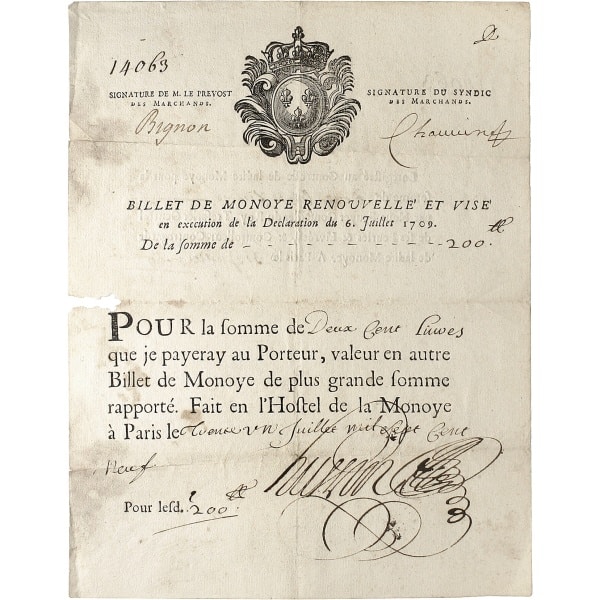 14063
SIGNATURE DE M. LE PREVOST
DES MARCHANDS.
Bignon
SIGNATURE DU SYNDIC
DES MARCHANDS.
BILLET DE MONOYE RENOUVELLE' ET VISE'
en execution de la Declaration du 6. Juillet 1709.
De la ſomme de - - - - - - - - - - 200. ₶
POUR la ſomme de Deux Cent Liuves
que je payeray au Porteur, valeur en autre
Billet de Monoye de plus grande ſomme
rapporté. Fait en l'Hoſtel de la Monoye
à Paris le Trente vn Juillet mil sept cent
Neuf
Pour leſd. 200 ₶